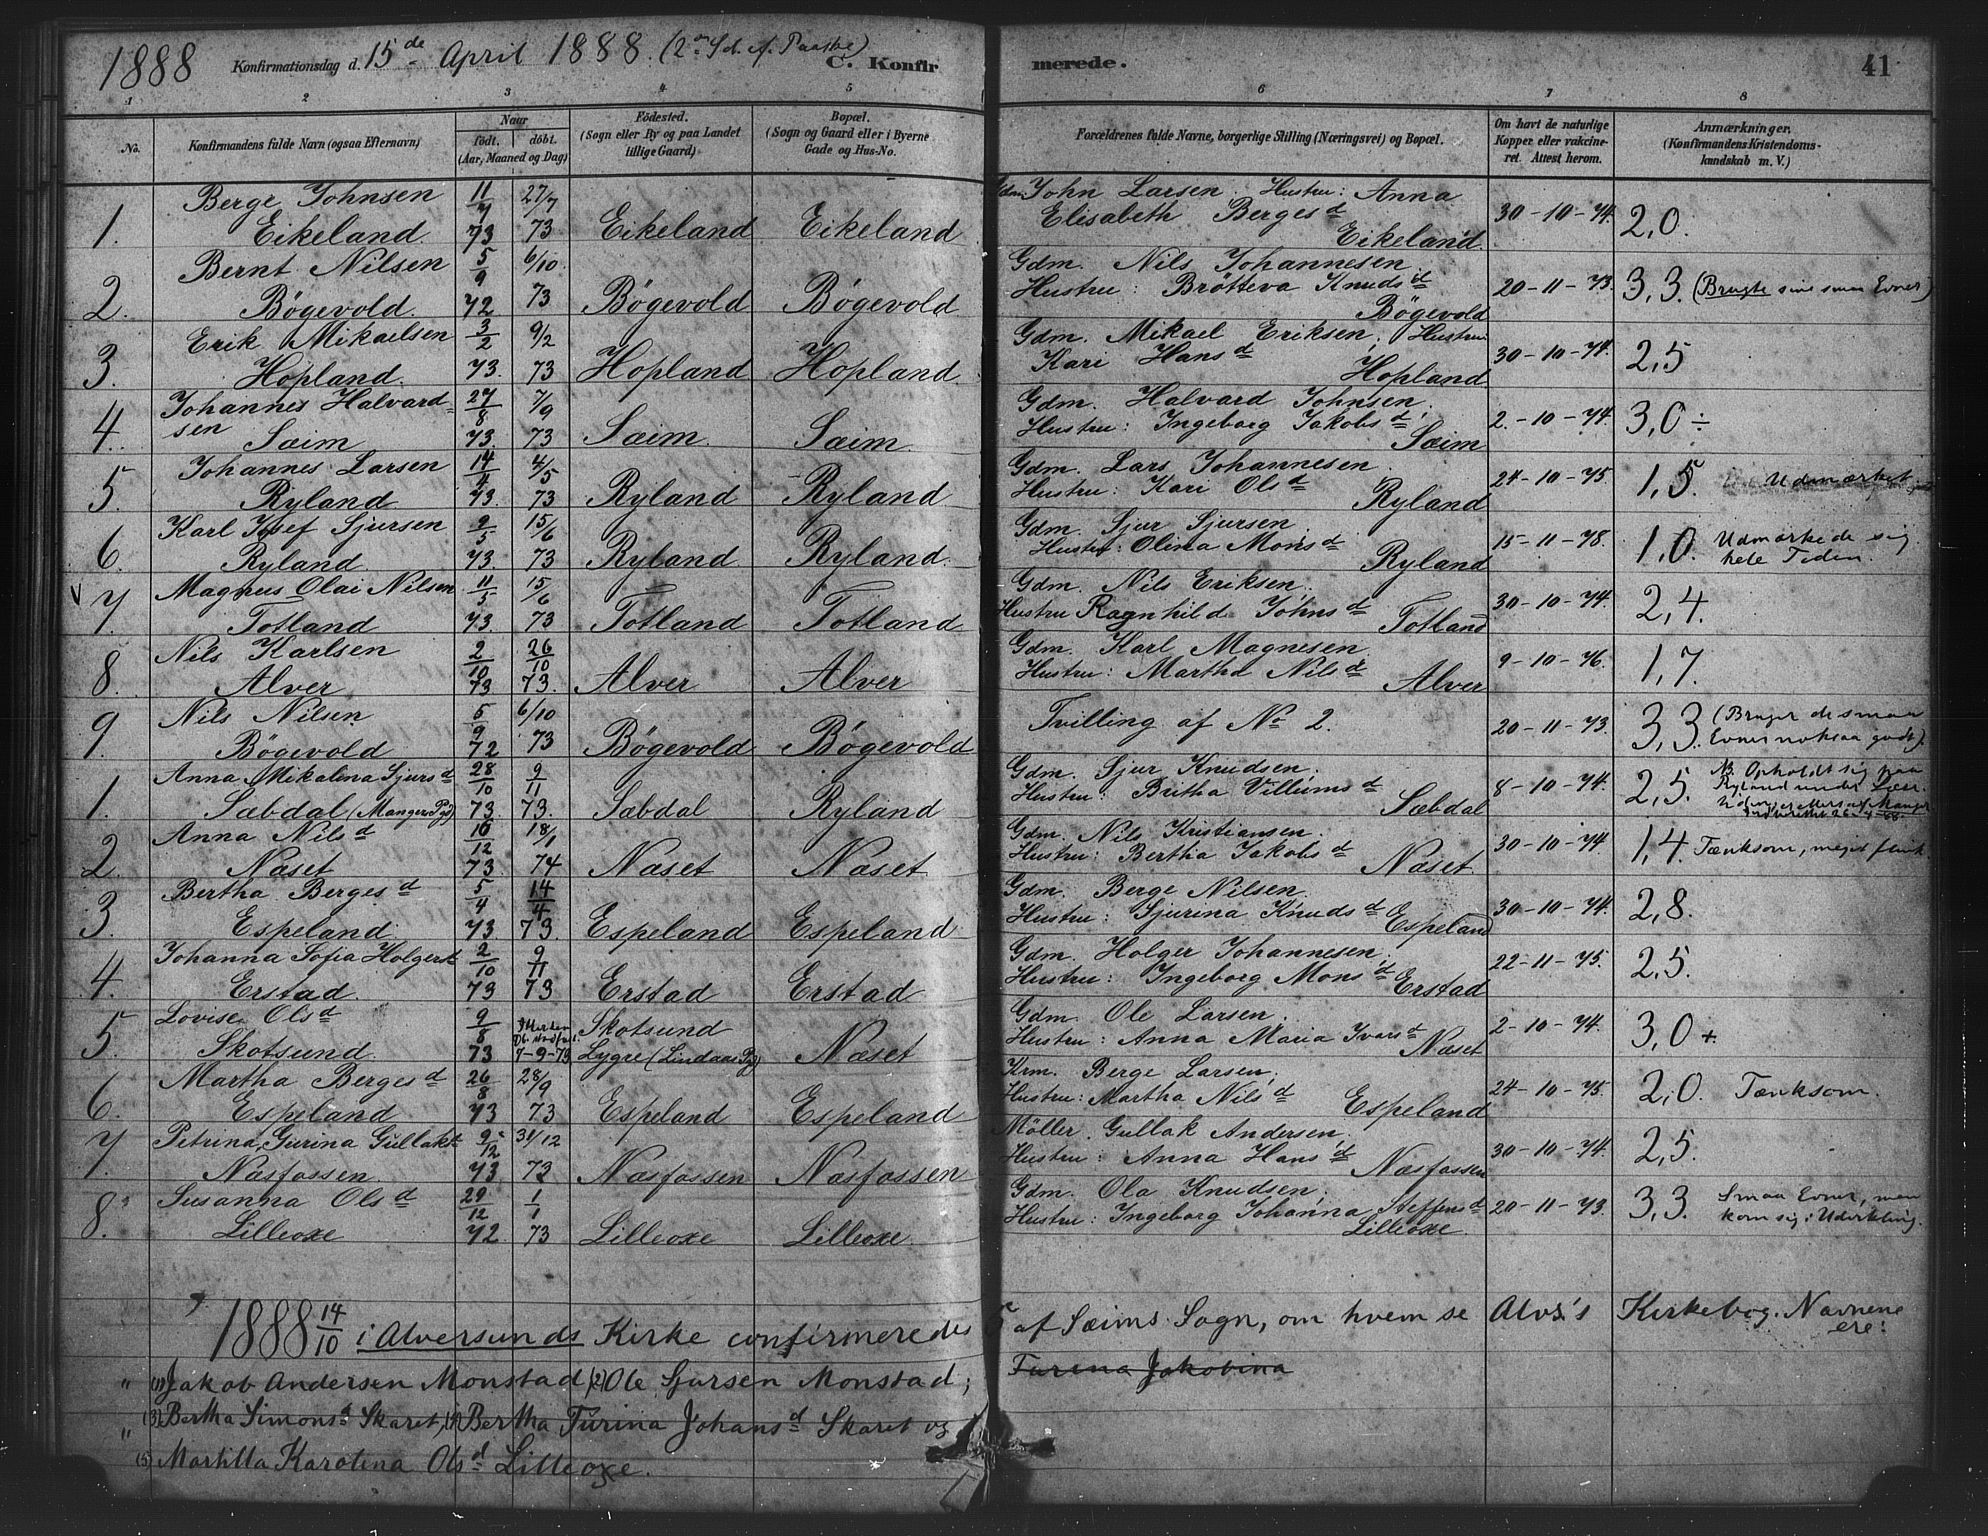 1888 Konfirmationsdag d. 15de April 1888. (2den Sd. e. Paaske) C. Konfirmerede. 41
1 2 3 4 5 6 7 8
No. Konfirmandens fulde Navn (ogsaa Efternavn) Naar födt. döbt. (Aar, Maaned og Dag) Födested. (Sogn eller By og paa Landet tillige Gaard) Bopæl. (Sogn og Gaard eller i Byerne Gade og Hus-No. Forældrenes fulde Navne, borgerlige Stilling (Næringsvei) og Bopæl. Om havt de naturlige Kopper eller vakcineret. Attest herom. Anmærkninger. (Konfirmandens Kristendomskundskab m. V.)
1. Berge Johnsen Eikeland. 11/7 73 27/7 73 Eikeland Eikeland Gdm. John Larsen. Hustru: Anna Elisabeth Bergesd Eikeland 30-10-74. 2,0.
2. Bernt Nilsen Bögevold. 5/9 72 6/10 73 Bögevold Bögevold Gdm. Nils Johannesen. Hustru: Brötteva Knudsd Bögevold 20-11-73. 3,3. (Brugte sine smaa Evner)
3. Erik Mikaelsen Hopland. 3/2 73. 9/2 73 Hopland Hopland Gdm. Mikael Eriksen. Hustru Kari Hansd Hopland 30-10-74. 2,5
4. Johannes Halvardsen Sæim 27/8 73. 7/9 73 Sæim Sæim Gdm. Halvard Johnsen. Hustru: Ingeborg Jakobsd Sæim 2.-10-74. 3,0 ÷
5. Johannes Larsen Ryland 14/4 73. 4/5 73 Ryland Ryland Gdm. Lars Johannesen. Hustru: Kari Olsd Ryland 24-10-75 1,5. Udmærket.
6. Karl Josef Sjursen Ryland 2/5 73. 15/6 73 Ryland Ryland. Gdm. Sjur Sjursen. Hustru: Olina Monsd Ryland 15-11-78. 1,0. Udmærkede sig hele Tiden.
V 7. Magnus Olai Nilsen Totland 11/5 73. 15/6 73 Totland Totland Gdm. Nils Eriksen. Hustru Ragnhild Johnsd Totland 30-10-74. 2,4.
8. Nils Karlsen Alver 2/10 73 26/10 73. Alver Alver Gdm. Karl Magnesen. Hustru: Martha Nilsd Alver 9-10-76. 1,7.
9. Nils Nilsen Bögevold 5/9 72 6/10 73 Bögevold Bögevold Tvilling af No 2. 20-11-73. 3,3. (Bruger de smaa Evner noksaa godt).
1. Anna Mikalina Sjursd Sæbdal (Manger Pgd) 28/10 73 9/11 73. Sæbdal Ryland Gdm. Sjur Knudsen. Hustru: Britha Villumsd Sæbdal 8-10-74. 2,5. NB. Opholdt sig paa Ryland under Læsn.
2. Anna Nilsd Næset 16/12 73. 18/1 74 Næset Næset Gdm. Nils Kristiansen. Hustru: Bertha Jakobsd Næset 30-10-74. 1,4. Tænksom, meget flink
3. Bertha Bergesd Espeland 5/4 73. 14/4 73. Espeland Espeland Gdm. Berge Nilsen. Hustru: Sjurina Knudsd Espeland 30-10-74. 2,8.
4. Johanna Sofia Holgersd Erstad. 2/10 73 9/11 73 Erstad Erstad Gdm. Holger Johannesen. Hustru: Ingeborg Monsd Erstad 22-11-75. 2,5.
5. Lovise Olsd Skotsund. 9/8 73 7-9-73 Skotsund Lygre (Lindaas Pgd) Næset Gdm. Ole Larsen. Hustru: Anna Maria Ivarsd Næset 2-10-74. 3,0 +.
6. Martha Bergesd Espeland 26/8 73 28/9 73 Espeland Espeland Krm. Berge Larsen. Hustru: Martha Nilsd Espeland 24-10-75. 2,0. Tænksom.
7. Petrina Gurina Gullaksd Næsfossen 9/12 73 31/12 73 Næsfossen Næsfossen Möller Gullak Andersen. Hustru: Anna Hansd Næsfossen 30-10-74. 2,5.
8. Susanna Olsd Lilleoxe 29/12 72. 1/1 73 Lilleoxe Lilleoxe. Gdm. Ola Knudsen. Hustru: Ingeborg Johanna Steffensd Lilleoxe. 20-11-73. 3,3. Smaa Evner, men kom sig i Udvikling.
1888 14/10 i Alversunds Kirke confirmeredes 5 af Sæims Sogn, om hvem se Alvs.'s Kirkebog. Navnene ere:
" (1) Jakob Andersen Monstad, (2) Ole Sjursen Monstad; Turina Jakobina
" (3) Bertha Simonsd Skaret, (4) Bertha Turina Johansd Skaret og
(5) Martilla Karolina Olsd Lilleoxe.